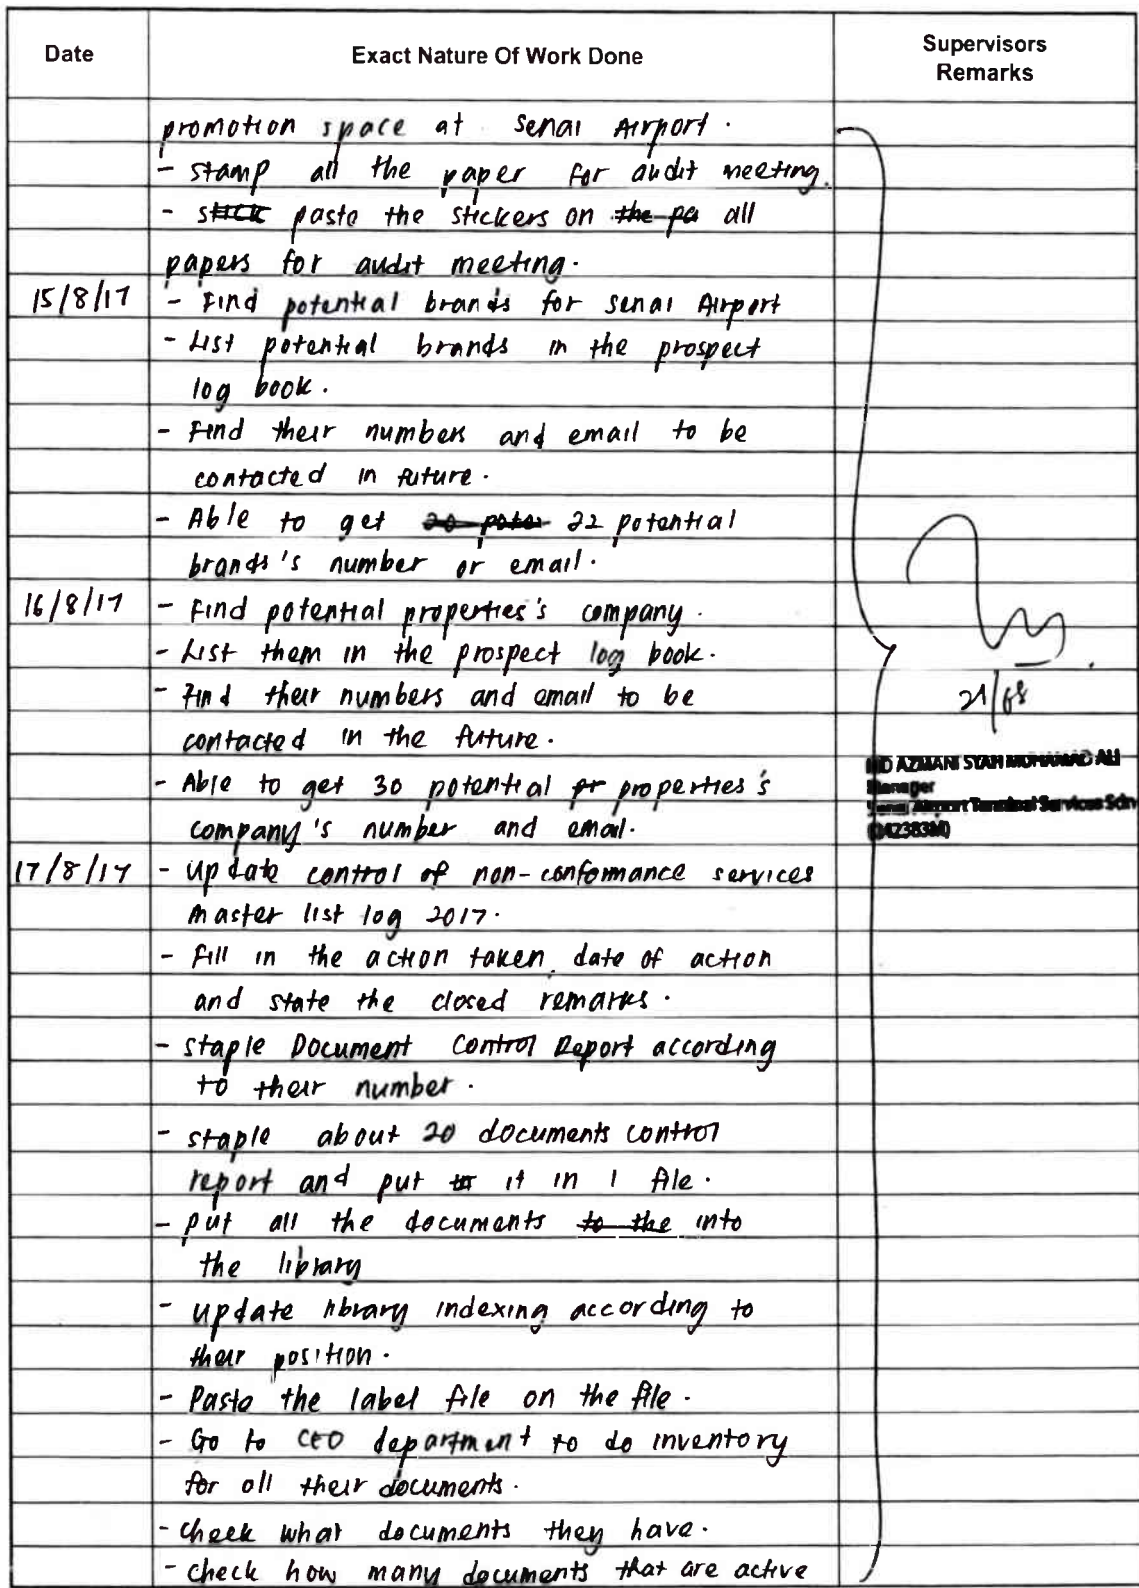 Date Exact Nature Of Work Done Supervisors Remarks
promotion space at Senai Airport.
- stamp all the paper for audit meeting.
- stick paste the stickers on the pa all
papers for audit meeting.
15/8/17 - Find potential brands for Senai Airport
- List potential brands in the prospect
log book.
- Find their numbers and email to be
contacted in future.
- Able to get 20 poten 22 potential
brands's number or email.
16/8/17 - Find potential properties's company.
- List them in the prospect log book.
- Find their numbers and email to be
contacted in the future.
21/08
- Able to get 30 potential pr properties's
company's number and email.
MD AZMANI SYAH MUHAMAD ALI
Manager
Senai Airport Terminal Services Sdn
(342383M)
17/8/17 - Update control of non-conformance services
master list log 2017.
- fill in the action taken, date of action
and state the closed remarks.
- staple Document Control Report according
to their number.
- staple about 20 documents control
report and put it in 1 file.
- put all the documents to the into
the library
- update library indexing according to
their position.
- Paste the label file on the file.
- Go to CEO department to do inventory
for all their documents.
- check what documents they have.
- check how many documents that are active